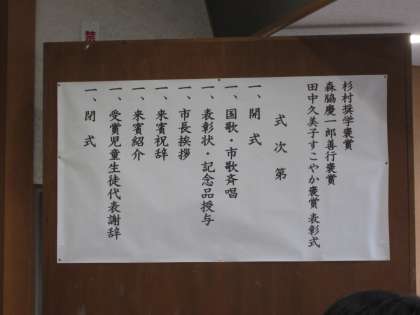 杉村奨学褒賞
森脇慶一郎善行褒賞
田中久美子すこやか褒賞 表彰式
式次第
一、開式
一、国歌・市歌斉唱
一、表彰状・記念品授与
一、市長挨拶
一、来賓祝辞
一、来賓紹介
一、受賞児童生徒代表謝辞
一、閉式
禁